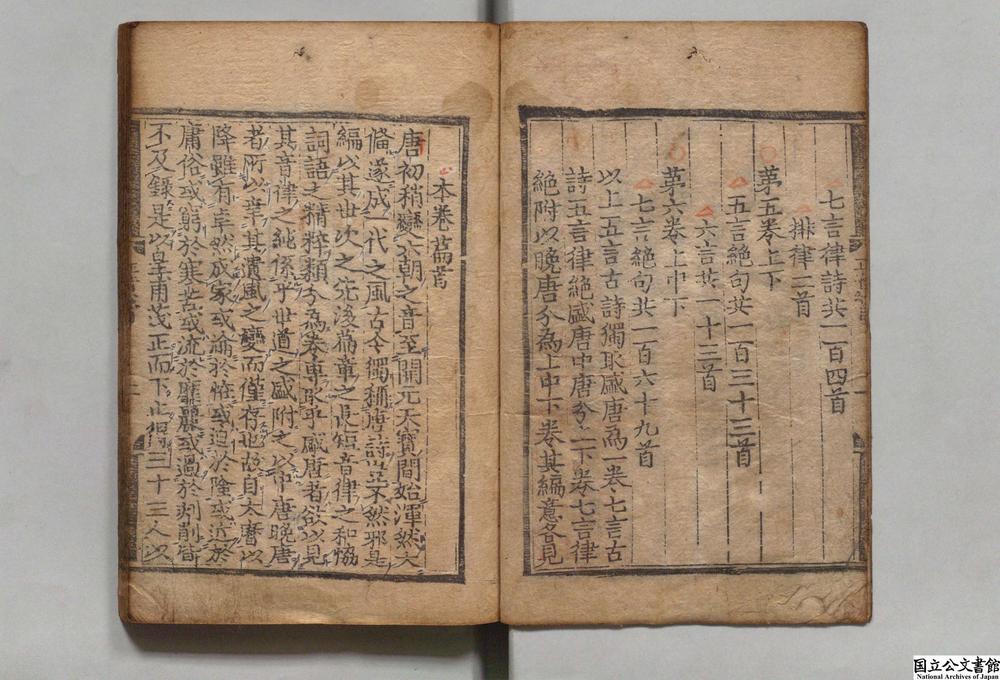 七言律詩共一百四首
排律二首
苐五卷上下
五言絶句共一百三十三首
六言共一十三首
苐六卷上中下
七言絶句共一百六十九首
以上五言古詩獨取盛唐為一卷七言古
詩五言律絶盛唐中唐分上下卷七言律
絶附以晚唐分為上中下卷其編意各見
本卷篇首
唐初稍變六朝之音至開元天寶間始渾然大
備遂成一代之風古今獨稱唐詩豈不然邪是
編以其世次之先後篇章之長短音律之和恊
詞語之精粹類分為卷專取乎盛唐者欲以見
其音律之純係乎世道之盛附之以中唐晚唐
者所以幸其遺風之變而僅存也故自大曆以
降雖有卓然成家或淪於怪或迫於險或近於
庸俗或窮於寒苦或流於靡麗或過於刻削皆
不及錄是以皇甫茂正而下止得三十三人以
国立公文書館
National Archives of Japan